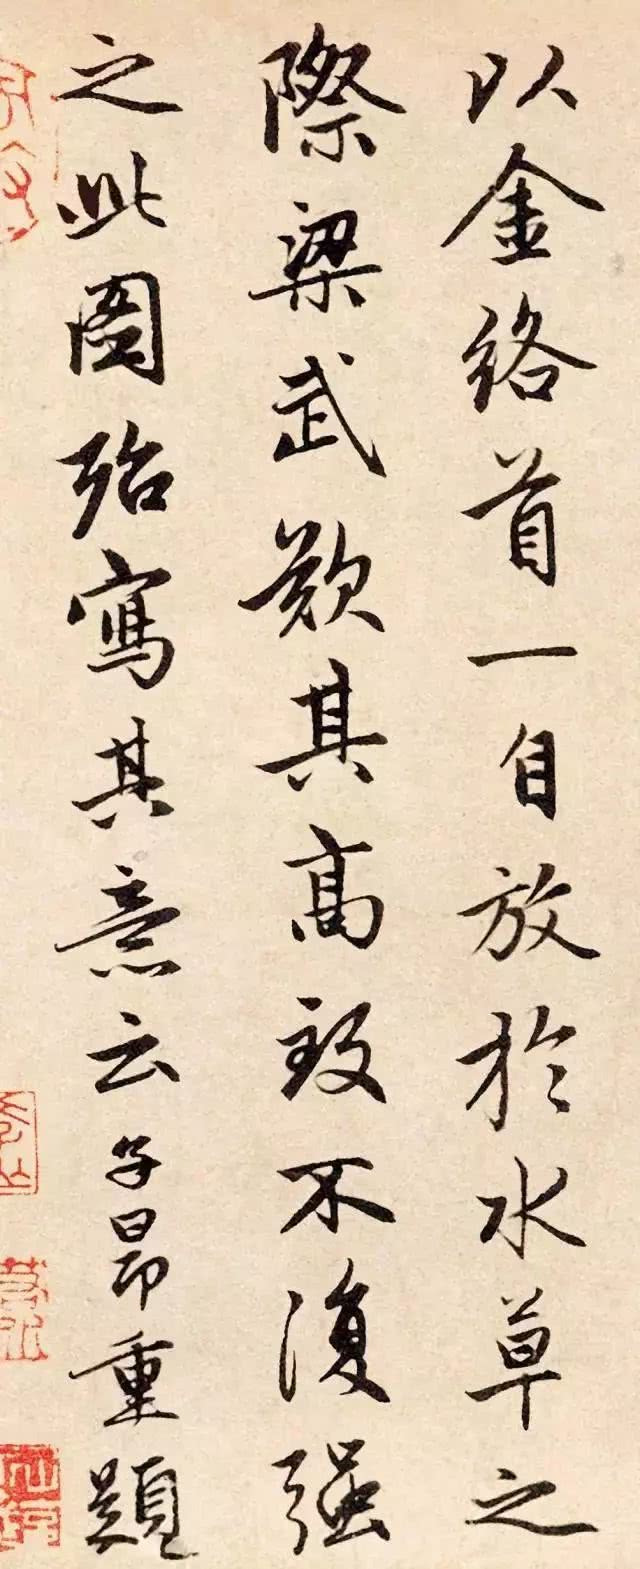 以金络首一自放於水草之
際梁武歎其高致不復强
之此圖殆寫其意云子昂重題